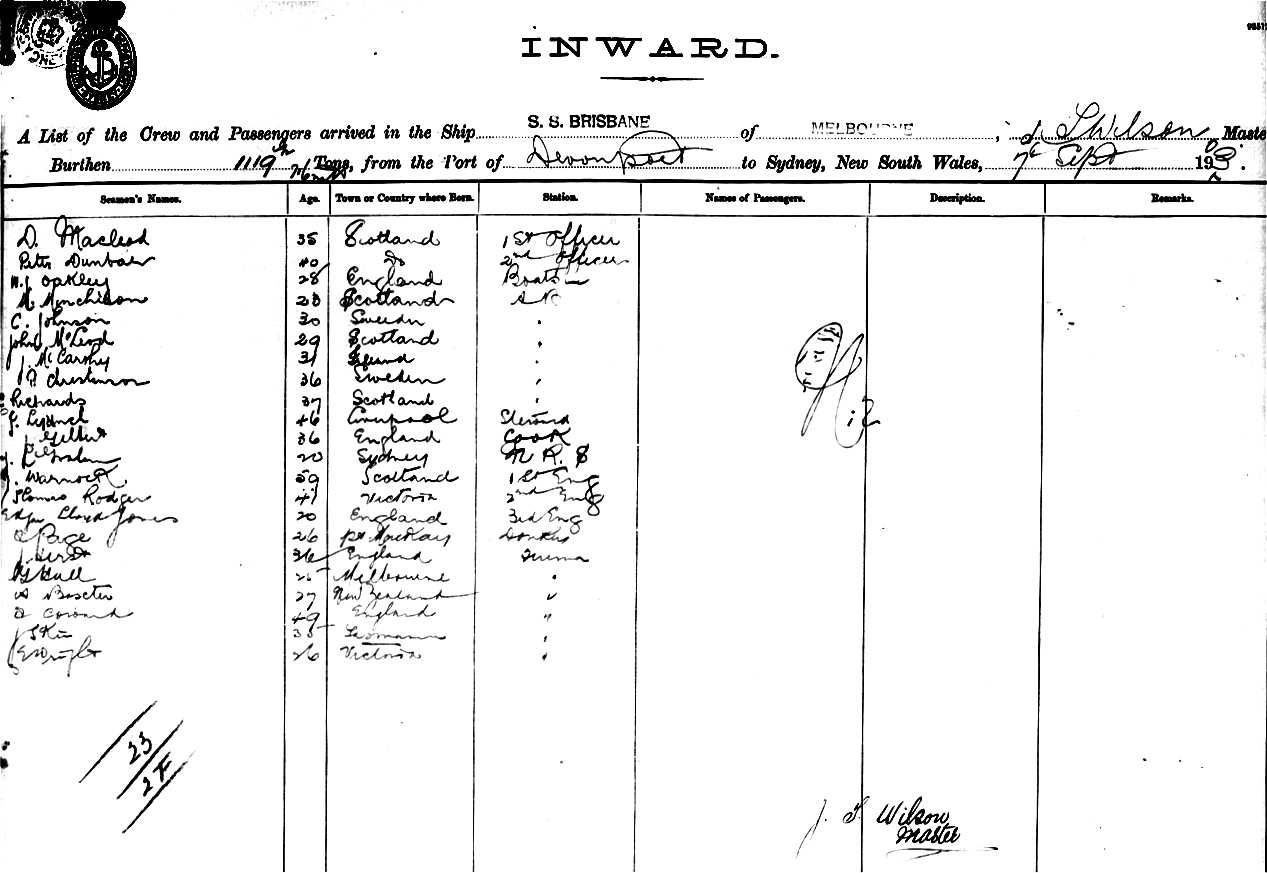 INWARD.
A List of the Crew and Passengers arrived in the Ship S. S. BRISBANE of MELBOURNE, J. S Wilson Maste
Burthen 1119 Tons, from the Port of Devonport to Sydney, New South Wales, 7th Sept 1903.
Seamen's Names. Age. Town or Country where Born. Station. Names of Passengers. Description. Remarks.
D. Macleod 35 Scotland 1st Officer
Peter Dunbar 40 Do 2nd Officer
W. J. Oakley 28 England Boatsn
M. Murchison 28 Scotland A B
C. Johnson 30 Sweden "
John McLeod 29 Scotland "
J. McCarthy 31 "
36 Sweden "
Richards 37 Scotland "
46 Liverpool Steward
J. Gilbert 36 England Cook
Graham 20 Sydney
J. Warnock 59 Scotland 1st Eng
Thomas Rodger 41 Victoria 2nd Eng
Edgar Lloyd Jones 20 England 3rd Eng
Page 26 Pt MacKay Donkey
J. Hirst 36 England
Hull 25 Melbourne "
Baxter 27 New Zealand "
Coward 49 England "
J S Kin 35 Tasmania "
26 Victoria "
Nil
23
2 F
J. S. Wilson
Master